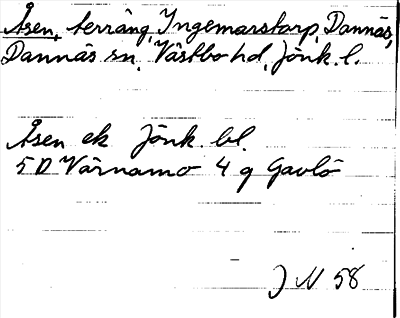 Åsen, terräng, Ingemarstorp, Dannäs,
Dannäs sn. Västbo hd, Jönk. l.
Åsen ek Jönk. bl.
5D Värnamo 4 g Gavlö
J N 58